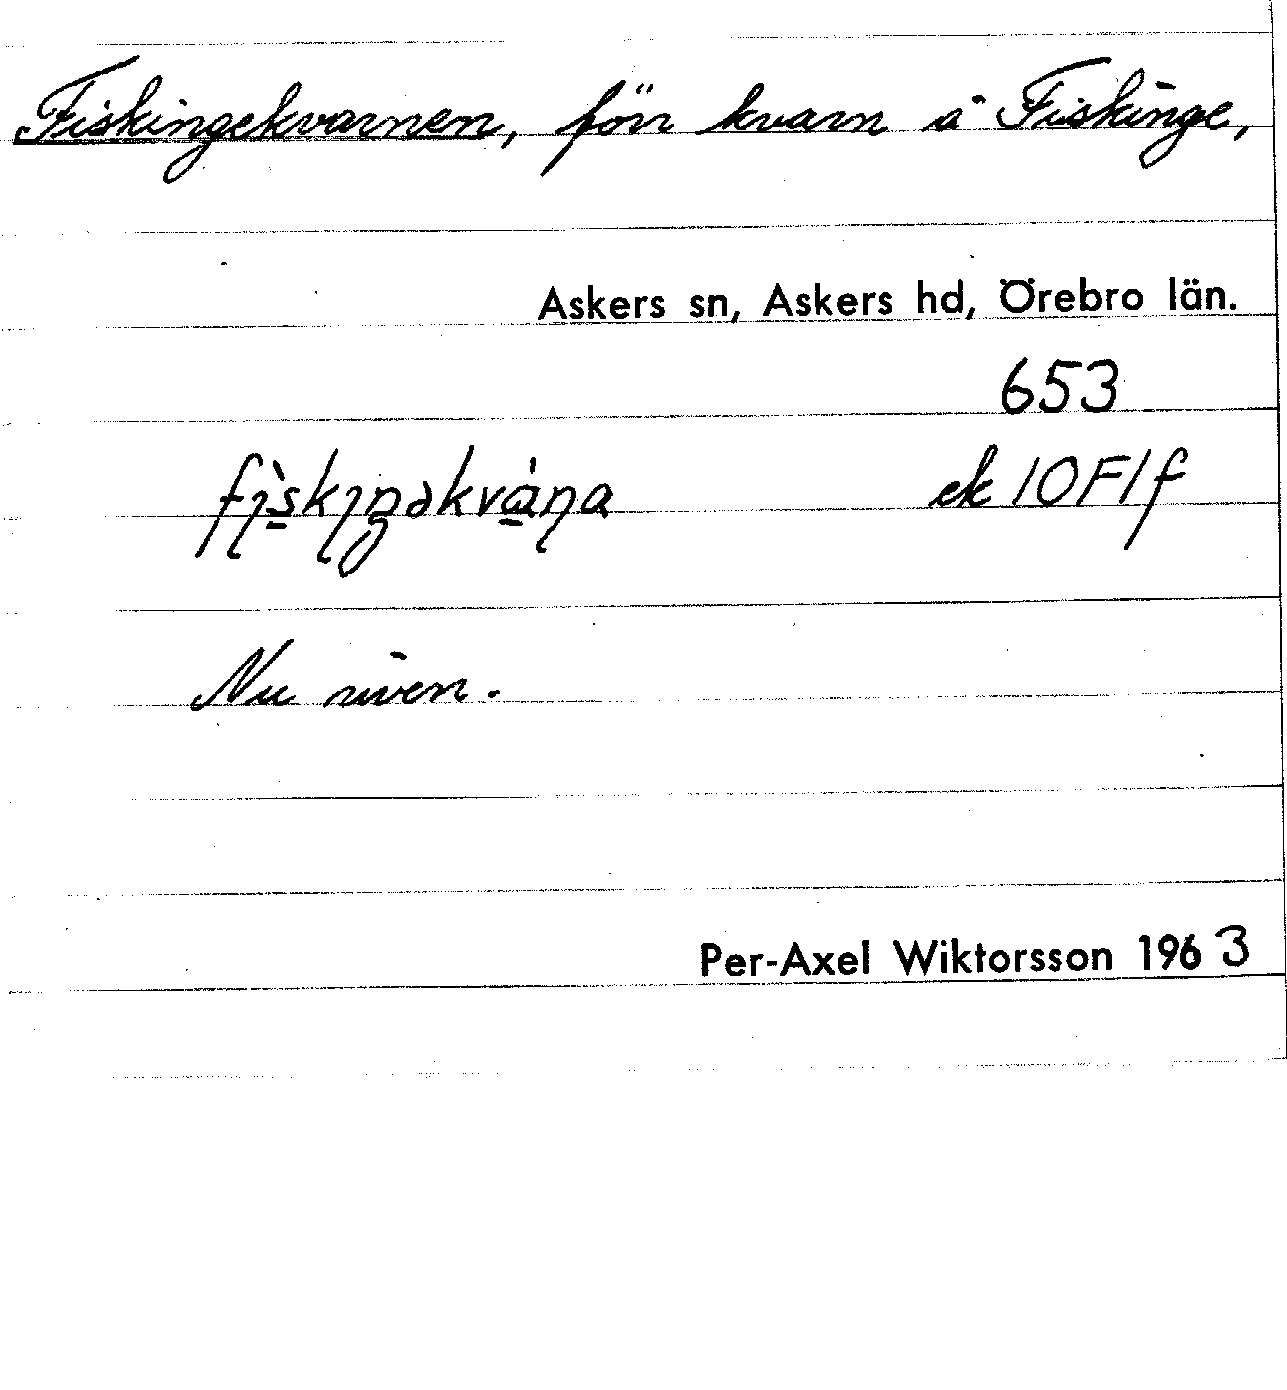 Fiskingekvarnen, förr kvarn å Fiskinge,
Askers sn, Askers hd, Örebro län.
653
fìskıŋəkváṇa ek 10F1f
Nu riven.
Per-Axel Wiktorsson 1963